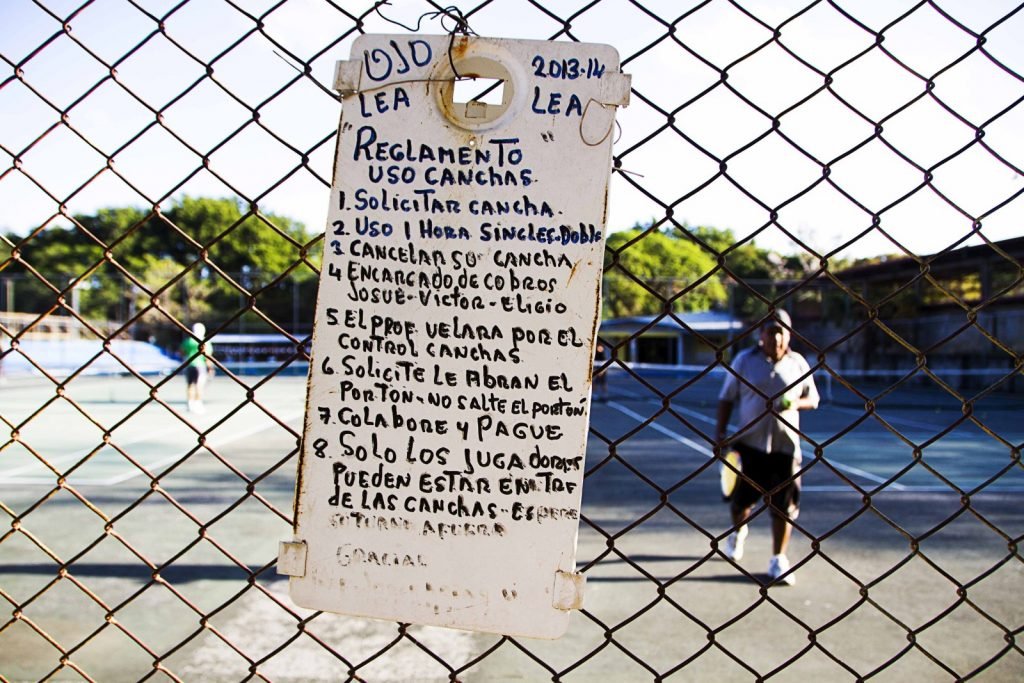 OJO 2013-14
LEA LEA
"REGLAMENTO"
USO CANCHAS.
1. SOLICITAR CANCHA.
2. USO 1 HORA SINGLES-DOBLE
3 CANCELAR SU CANCHA
4 ENCARGADO DE COBROS
JOSUE-VICTOR-ELIGIO
5 EL PROF VELARA POR EL
CONTROL CANCHAS
6. SOLICITE LE ABRAN EL
PORTON-NO SALTE EL PORTON
7. COLABORE Y PAGUE
8. SOLO LOS JUGADORES
PUEDEN ESTAR ENTRE
DE LAS CANCHAS-ESPERE
TURNO AFUERA
GRACIAS